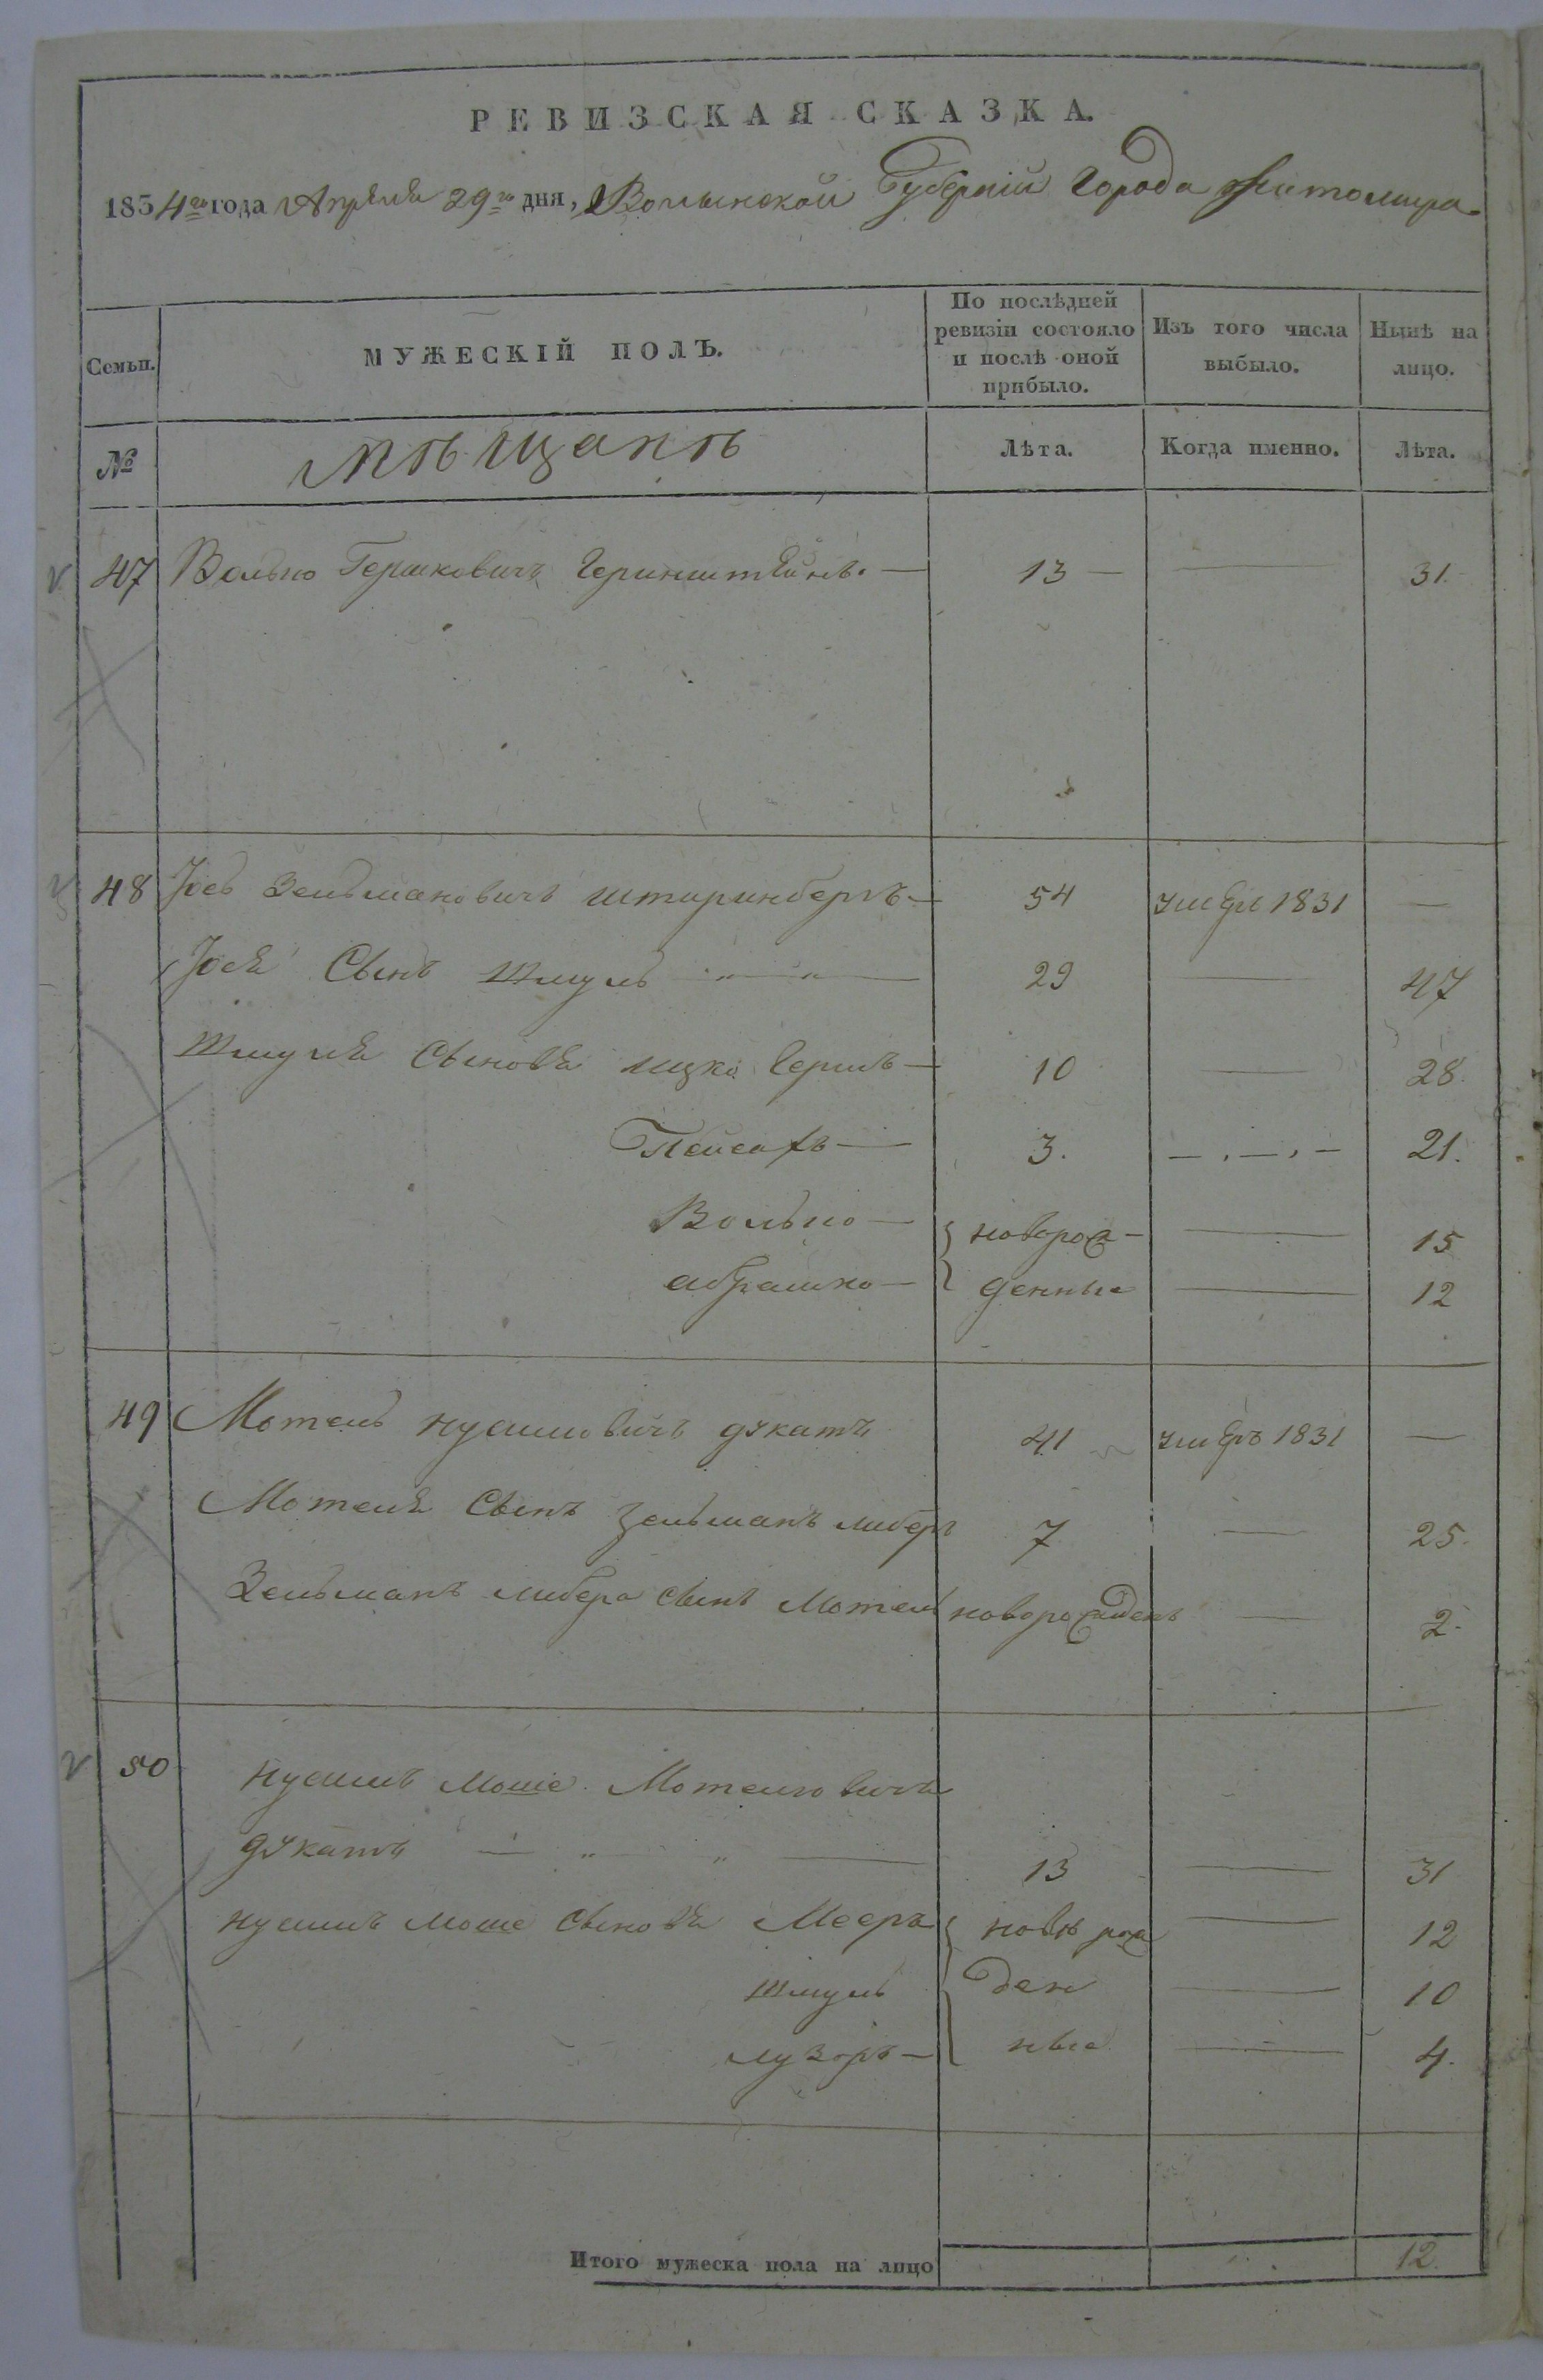 РЕВИЗСКАЯ СКАЗКА.
1834го года Апреля 29го дня, Волынской Губерніи Города Житомира
Семьи. МУЖЕСКІЙ ПОЛЪ. По послѣдней ревизіи состояло и послѣ оной прибыло. Изъ того числа выбыло. Нынѣ на лицо.
№ Мѣщанъ Лѣта. Когда именно. Лѣта.
47 Волько Гершковичъ Геринштейнъ. — 13 — — 31.
48 Іось Зельмановичъ Штаринбергъ — 54 умеръ 1831 —
Іося Сынъ Шмуль — 29 — 47
Шмуля Сыновья Ицко Гершъ — 10 — 28.
Пейсахъ — 3. — 21.
Волько — новорож- — 15
Абрашко — денные — 12
49 Мотель Нусимовичъ Дукатъ 41 умеръ 1831 —
Мотеля Сынъ Зельманъ Либеръ 7 — 25.
Зельманъ Либера сынъ Мотель новорожденъ — 2.
50 Нусимъ Моше Мотелювичъ
Дукатъ — 13 — 31
Нусимъ Моше Сыновья Мееръ новорож — 12
Шмуль ден — 10
Лузоръ — ные — 4.
Итого мужеска пола на лицо 12.